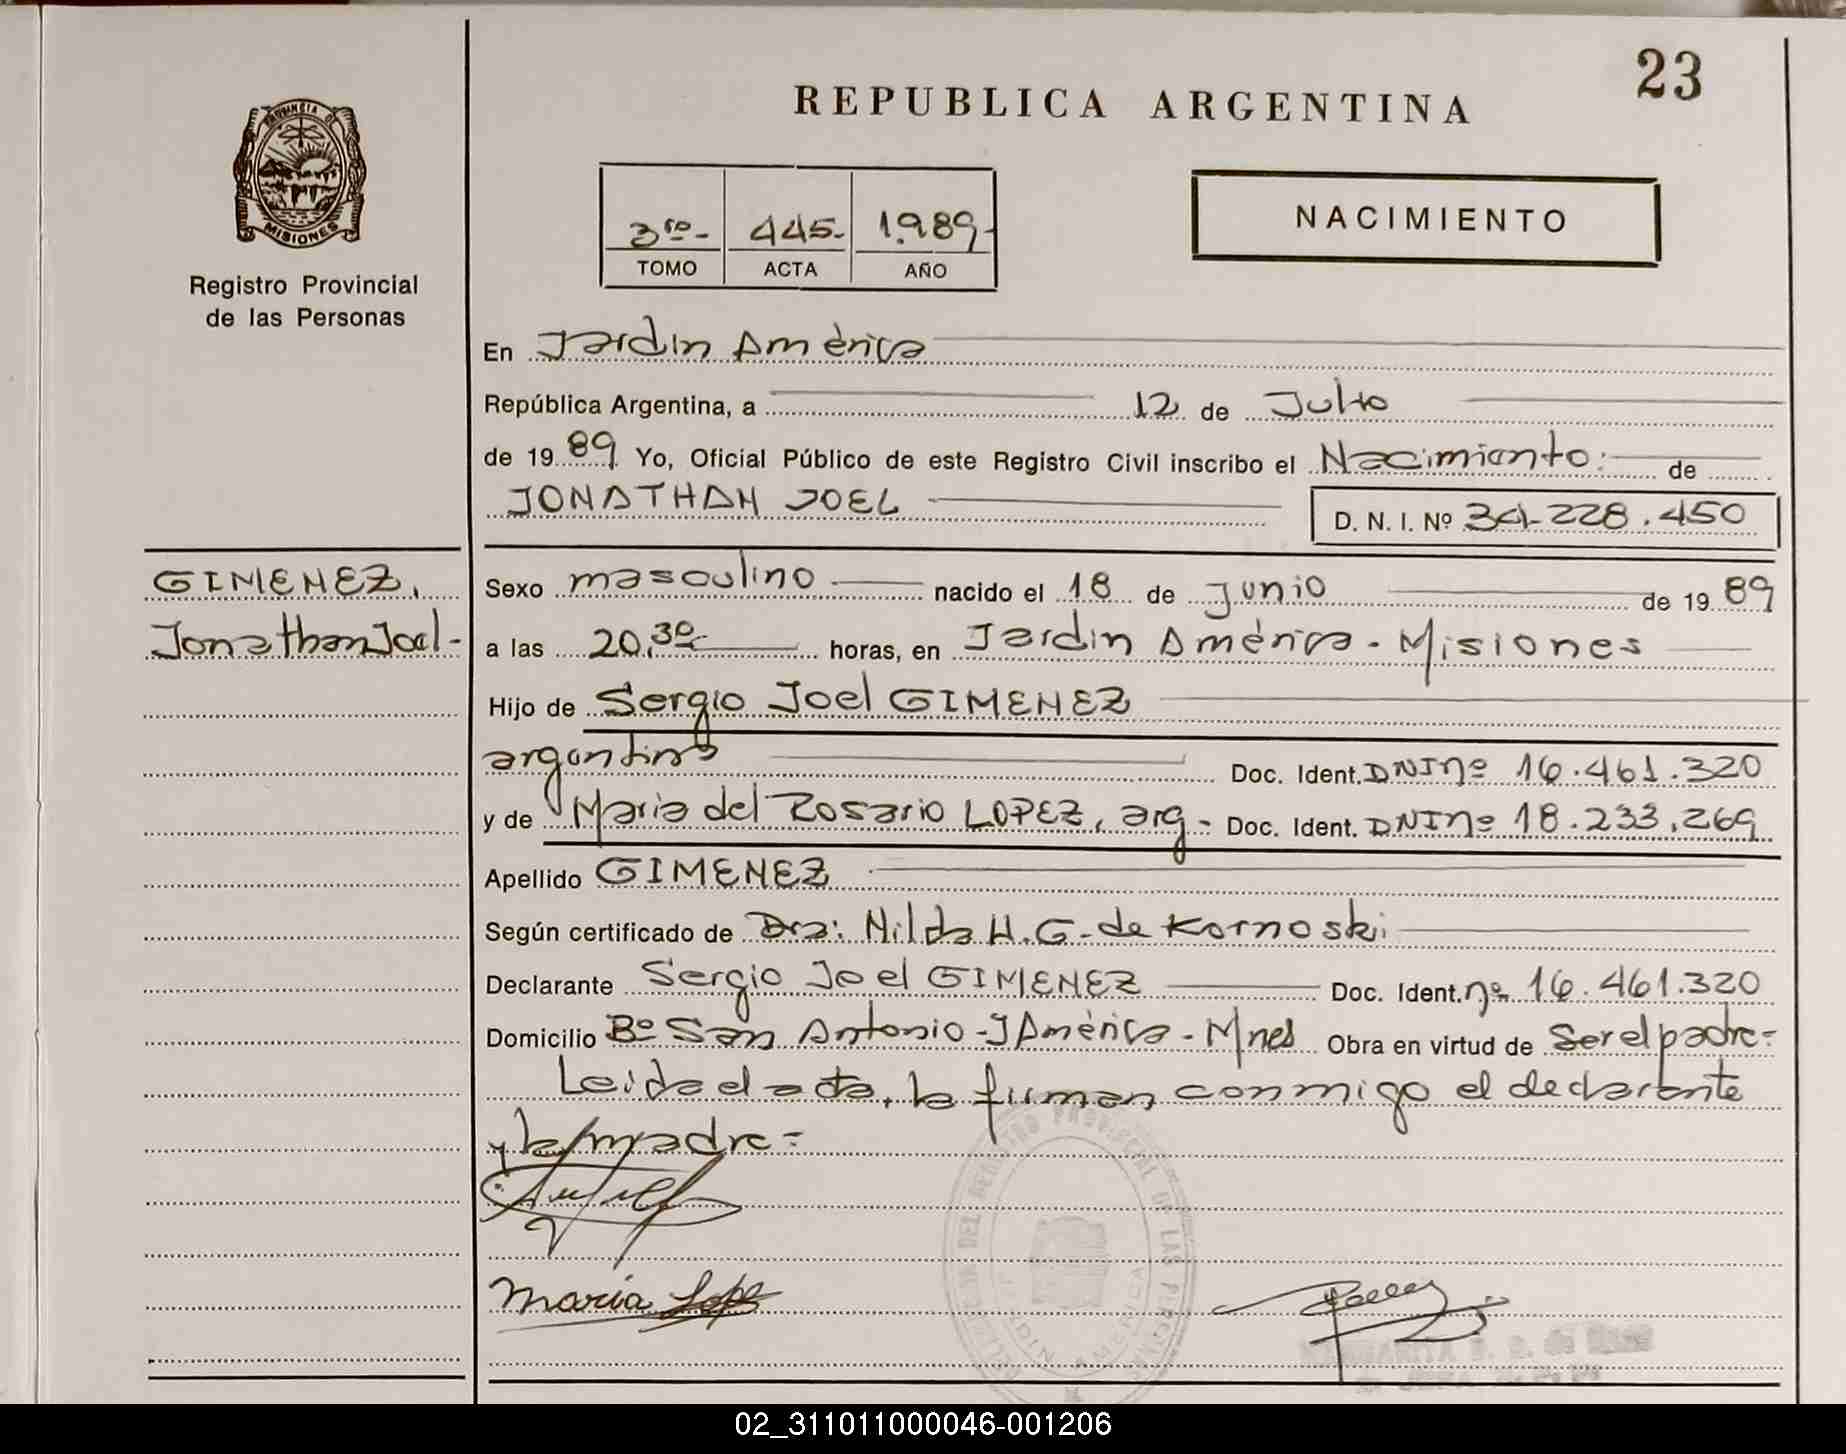 23
REPUBLICA ARGENTINA
PROVINCIA DE
MISIONES
Registro Provincial
de las Personas
3ro- 445- 1.989-
TOMO ACTA AÑO
NACIMIENTO
En Jardin América
República Argentina, a 12 de Julio
de 1989 Yo, Oficial Público de este Registro Civil inscribo el Nacimiento: de
JONATHAN JOEL
D. N. I. Nº 34.228.450
GIMENEZ,
Jonathan Joel-
Sexo masculino nacido el 18 de Junio de 1989
a las 20,30 horas, en Jardin América - Misiones
Hijo de Sergio Joel GIMENEZ
argentino Doc. Ident. DNI nº 16.461.320
y de Maria del Rosario LOPEZ, arg- Doc. Ident. DNI nº 18.233.269
Apellido GIMENEZ
Según certificado de Dra: Nilda H. G. de Kornoski
Declarante Sergio Joel GIMENEZ Doc. Ident. nº 16.461.320
Domicilio Bº San Antonio - J América - Mnes Obra en virtud de Ser el padre-
Leida el acta, la firman conmigo el declarante
y la madre-
María Lopez
REGISTRO PROVINCIAL DE LAS PERSONAS
JARDIN AMERICA
MARGARITA
02_311011000046-001206